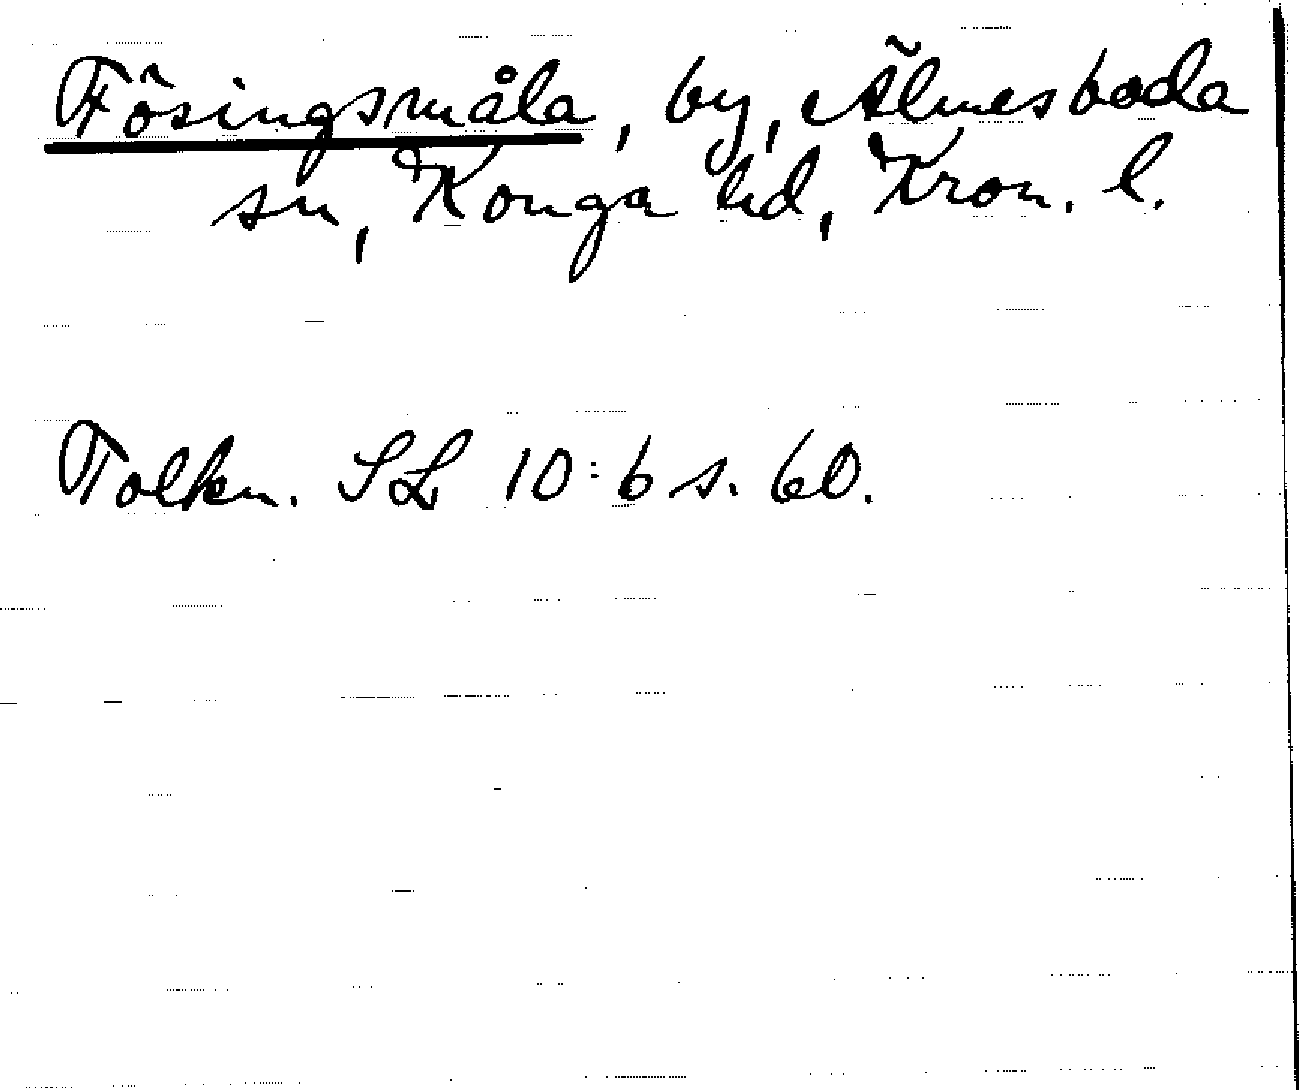 Fösingsmåla, by, Älmesboda
sn, Konga hd, Kron. l.
Tolkn. SL 10:6 s. 60.